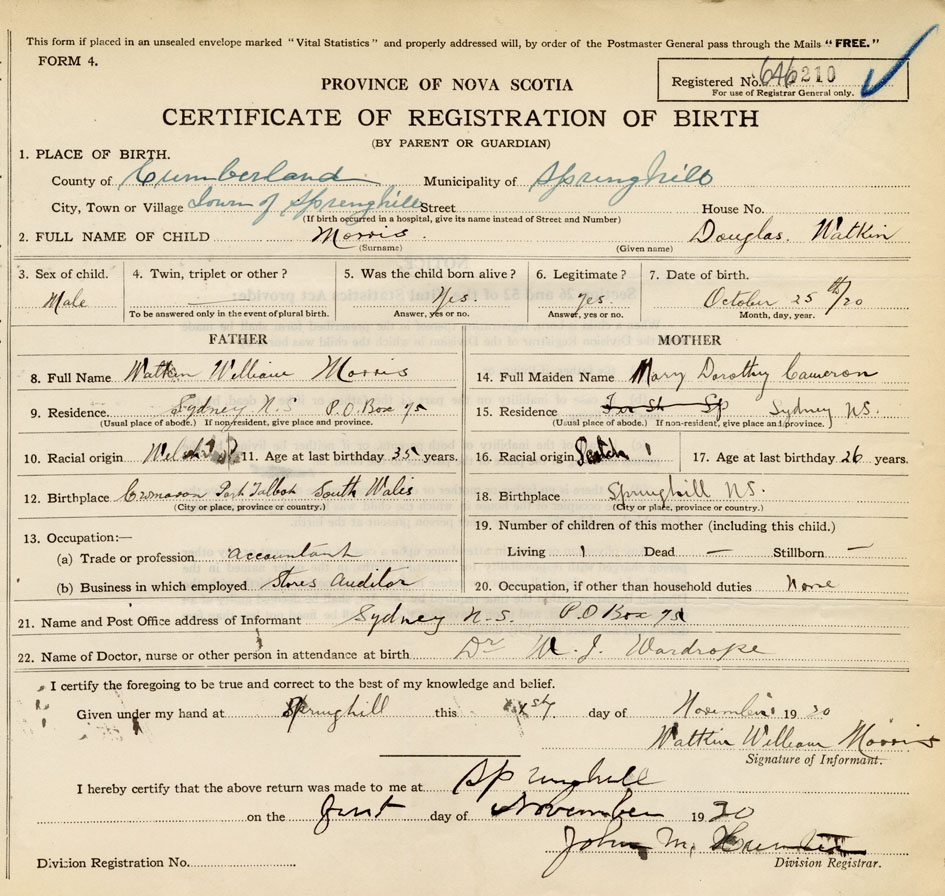 This form if placed in an unsealed envelope marked "Vital Statistics" and properly addressed will, by order of the Postmaster General pass through the Mails "FREE."
FORM 4.
Registered No. 646210
For use of Registrar General only.
PROVINCE OF NOVA SCOTIA
CERTIFICATE OF REGISTRATION OF BIRTH
(BY PARENT OR GUARDIAN)
1. PLACE OF BIRTH.
County of Cumberland Municipality of Springhill
City, Town or Village Town of Springhill Street House No.
(If birth occurred in a hospital, give its name instead of Street and Number)
2. FULL NAME OF CHILD Morris. Douglas. Watkin
(Surname) (Given name)
3. Sex of child. 4. Twin, triplet or other? 5. Was the child born alive? 6. Legitimate? 7. Date of birth.
Male Yes. Yes. October 25th/30
To be answered only in the event of plural birth. Answer, yes or no. Answer, yes or no. Month, day, year.
FATHER MOTHER
8. Full Name Watkin William Morris 14. Full Maiden Name Mary Dorothy Cameron
9. Residence Sydney N.S P.O. Box 75 15. Residence Sydney NS.
(Usual place of abode.) If non-resident, give place and province. (Usual place of abode.) If non-resident, give place and province.
10. Racial origin Welsh 11. Age at last birthday 35 years. 16. Racial origin Scotch 17. Age at last birthday 26 years.
12. Birthplace Port Talbot South Wales 18. Birthplace Springhill NS.
(City or place, province or country.) (City or place, province or country.)
13. Occupation:— 19. Number of children of this mother (including this child.)
(a) Trade or profession accountant Living 1 Dead — Stillborn —
(b) Business in which employed Stores Auditor 20. Occupation, if other than household duties None
21. Name and Post Office address of Informant Sydney N.S. P.O Box 75
22. Name of Doctor, nurse or other person in attendance at birth Dr W. J. Wardrope
I certify the foregoing to be true and correct to the best of my knowledge and belief.
Given under my hand at Springhill this 1st day of November 1930
Watkin William Morris
Signature of Informant.
I hereby certify that the above return was made to me at Springhill
on the first day of November 1930
John M. Hunter
Division Registration No. Division Registrar.